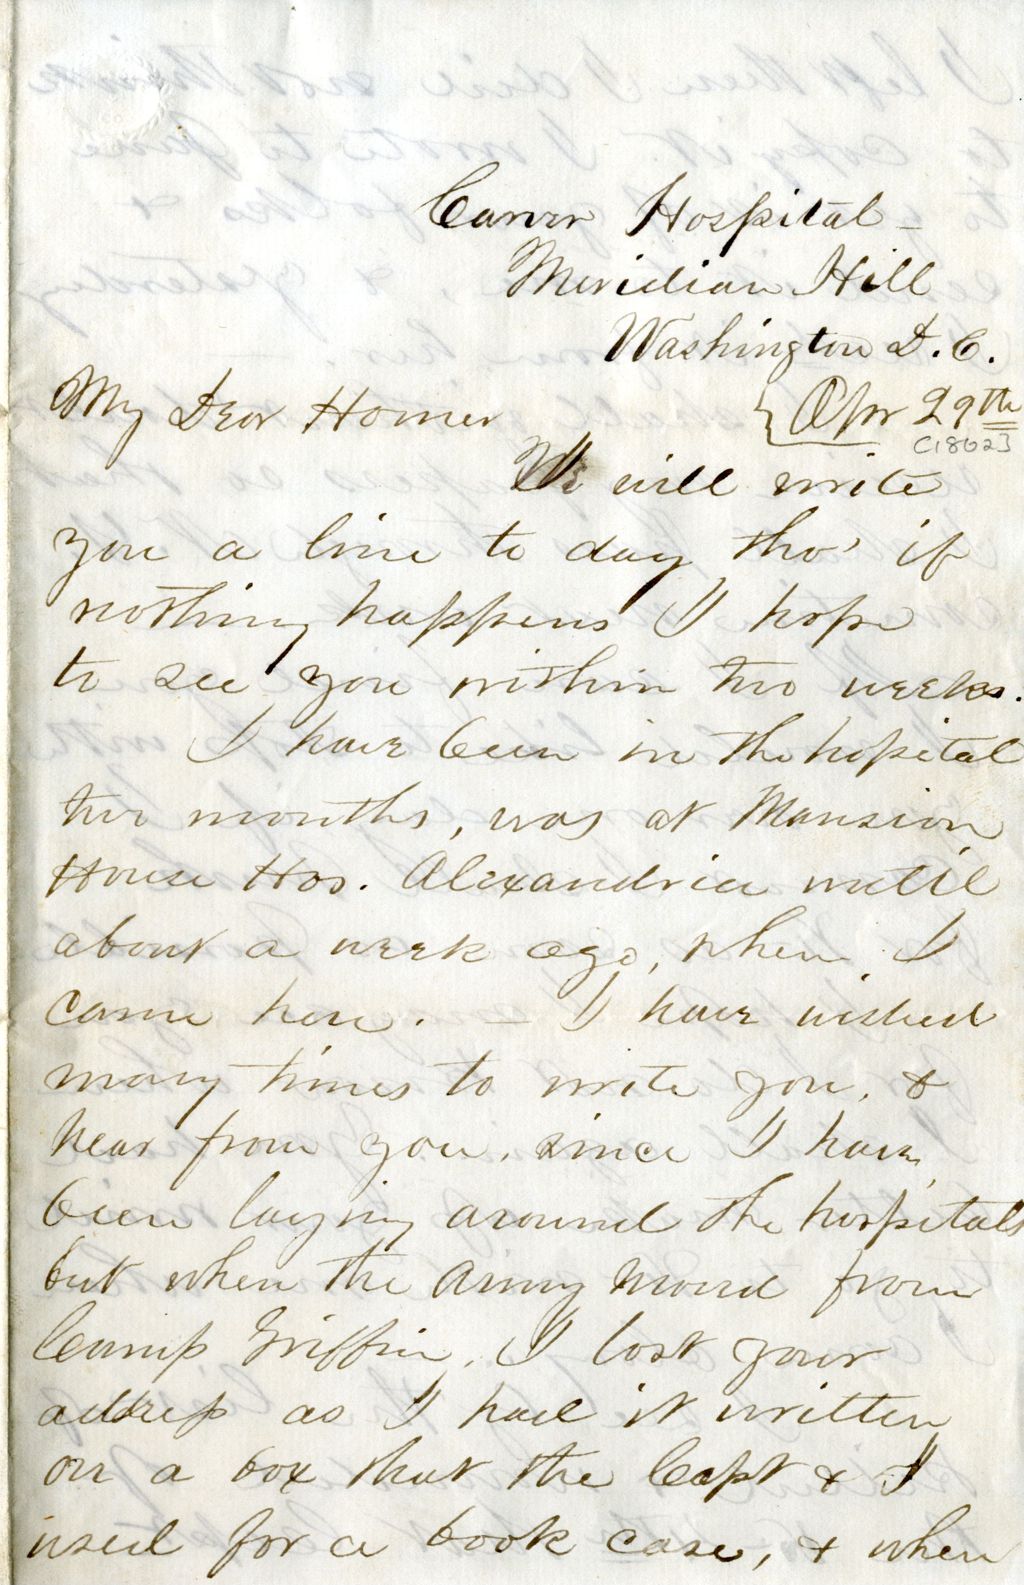 Carver Hospital -
Meridian Hill
Washington D.C.
My Dear Homer
Apr 29th
[1862]
We will write
you a line to day tho' if
nothing happens I hope
to see you within two weeks.
I have been in the hospital
two months, was at Mansion
House Hos. Alexandria until
about a week ago, when I
came here. - I have wished
many times to write you, &
hear from you, since I have
been laying around the hospitals
but when the Army moved from
Camp Griffin, I lost your
address as I had it written
on a box that the Capt & I
used for a book case, & when